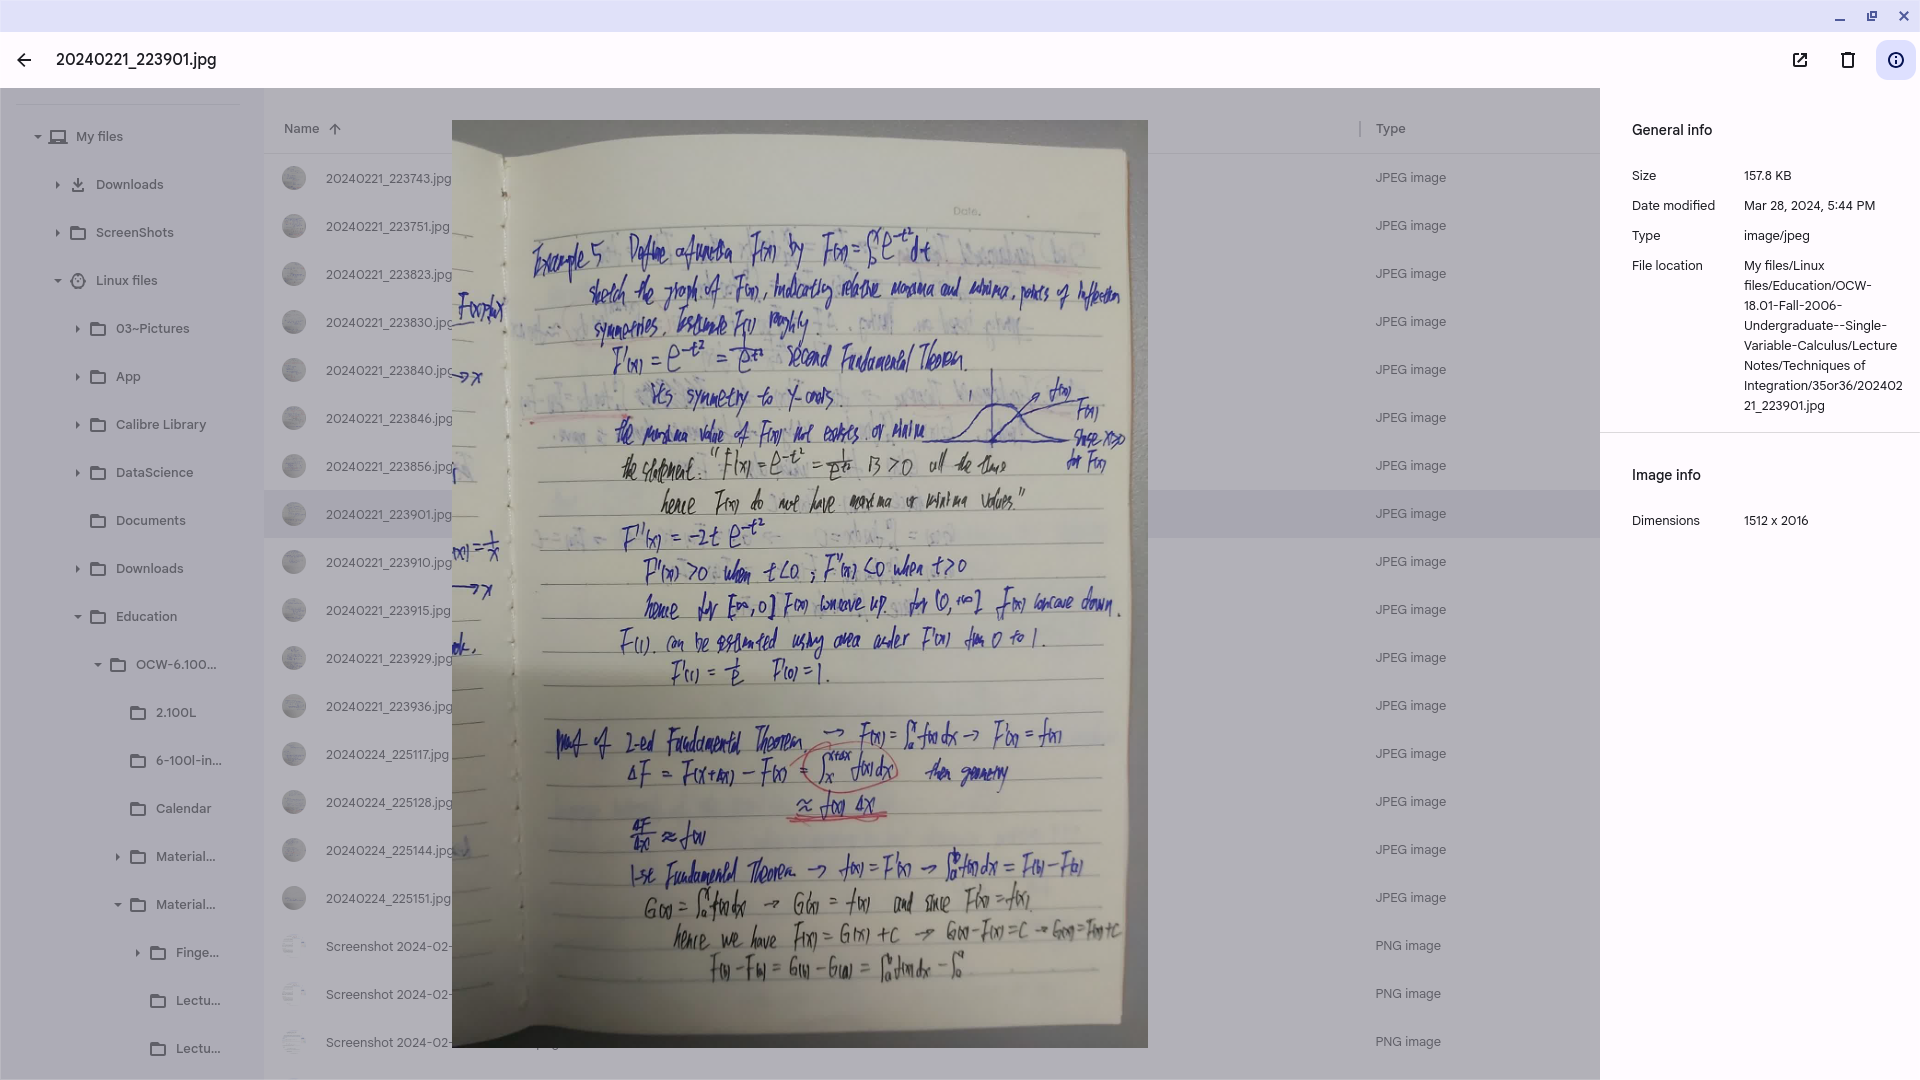 20240221_223901.jpg
My files
Downloads
ScreenShots
Linux files
03~Pictures
App
Calibre Library
DataScience
Documents
Downloads
Education
OCW-6.100...
2.100L
6-100l-in...
Calendar
Material...
Material...
Finge...
Lectu...
Lectu...
Name
Type
20240221_223743.jpg JPEG image
20240221_223751.jpg JPEG image
20240221_223823.jpg JPEG image
20240221_223830.jpg JPEG image
20240221_223840.jpg JPEG image
20240221_223846.jpg JPEG image
20240221_223856.jpg JPEG image
20240221_223901.jpg JPEG image
20240221_223910.jpg JPEG image
20240221_223915.jpg JPEG image
20240221_223929.jpg JPEG image
20240221_223936.jpg JPEG image
20240224_225117.jpg JPEG image
20240224_225128.jpg JPEG image
20240224_225144.jpg JPEG image
20240224_225151.jpg JPEG image
Screenshot 2024-02- PNG image
Screenshot 2024-02- PNG image
Screenshot 2024-02- PNG image
Date.
Example 5 Define a function F(x) by F(x) = ∫₀ˣ e^-t² dt
sketch the graph of F(x), indicating relative maxima and minima, points of inflection
symmetries. Estimate F(1) roughly.
F'(x) = e^-t² = 1/e^t² Second Fundamental Theorem.
Its symmetry to Y-axis.
the maxima value of F(x) not exists. or minima
1 f(x)
F(x)
since x>0
for F(x)
the statement. "F'(x) = e^-t² = 1/e^t² is >0 all the time
hence F(x) do not have maxima or minima values."
F''(x) = -2t e^-t²
F''(x) >0 when t<0 ; F''(x) <0 when t>0
hence for [-∞, 0] F(x) concave up. for [0, +∞] F(x) concave down.
F(1). can be estimated using area under F'(x) from 0 to 1.
F'(1) = 1/e F'(0) = 1.
proof of 2-ed Fundamental Theorem. → F(x) = ∫ₐˣ f(x) dx → F'(x) = f(x)
ΔF = F(x+Δx) - F(x) = ∫ₓ^x+Δx f(x) dx then geometry
≈ f(x) Δx
ΔF/Δx ≈ f(x)
1-st Fundamental Theorem → f(x) = F'(x) → ∫ₐᵇ f(x) dx = F(b) - F(a)
G(x) = ∫ₐˣ f(x) dx → G'(x) = f(x) and since F'(x) = f(x).
hence we have F(x) = G(x) + C → G(x) - F(x) = C → G(x) = F(x) + C
F(b) - F(a) = G(b) - G(a) = ∫ₐᵇ f(x) dx - ∫ₐᵃ
General info
Size 157.8 KB
Date modified Mar 28, 2024, 5:44 PM
Type image/jpeg
File location My files/Linux
files/Education/OCW-
18.01-Fall-2006-
Undergraduate--Single-
Variable-Calculus/Lecture
Notes/Techniques of
Integration/35or36/202402
21_223901.jpg
Image info
Dimensions 1512 x 2016